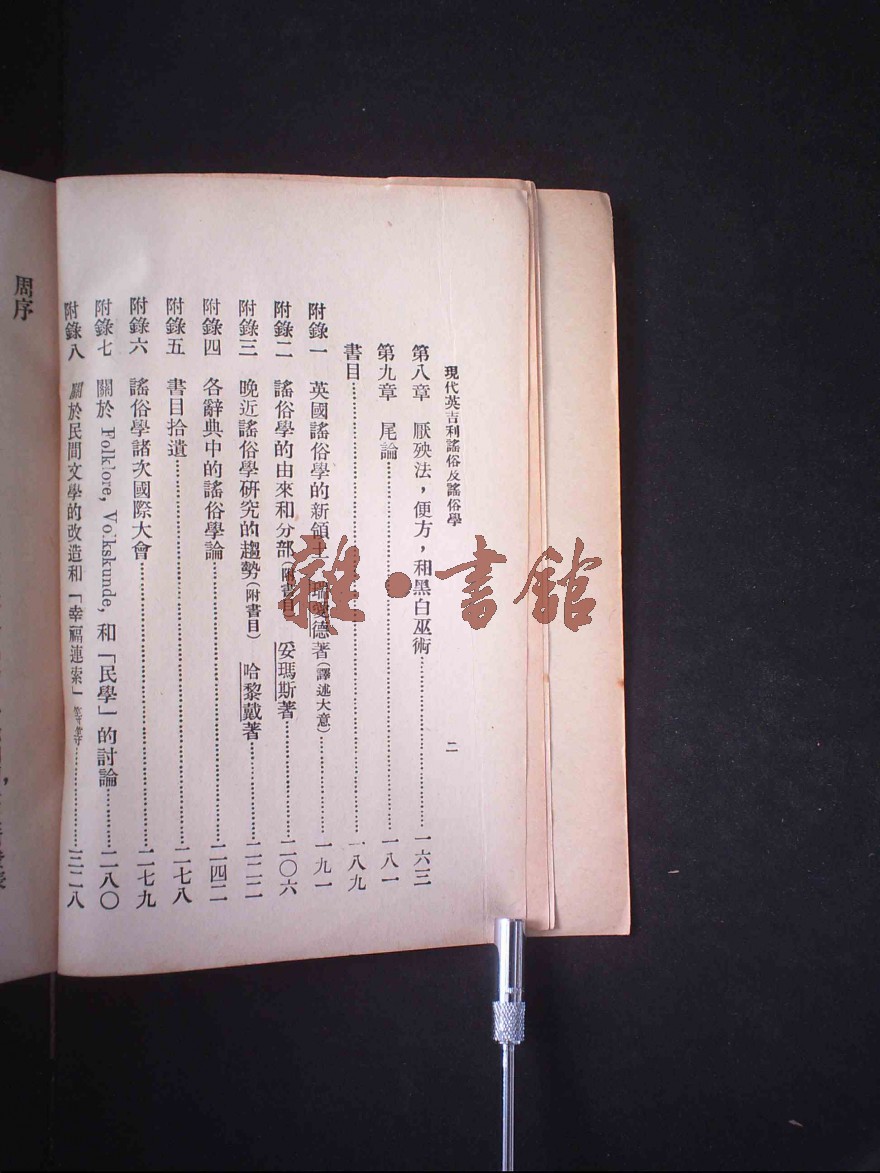 現代英吉利謠俗及謠俗學
二
第八章　厭殃法，便方，和黑白巫術……一六三
第九章　尾論……一八一
書目……一八九
附錄一　英國謠俗學的新領土　瑞愛德著（譯述大意）……一九一
附錄二　謠俗學的由來和分部（附書目）　妥瑪斯著……二〇六
附錄三　晚近謠俗學研究的趨勢（附書目）　哈黎戴著……二二二
附錄四　各辭典中的謠俗學論……二四二
附錄五　書目拾遺……二七八
附錄六　謠俗學諸次國際大會……二七九
附錄七　關於 Folklore, Volkskunde, 和「民學」的討論……二八〇
附錄八　關於民間文學的改造和「幸福連索」等等……三二八
周序
雜·書館